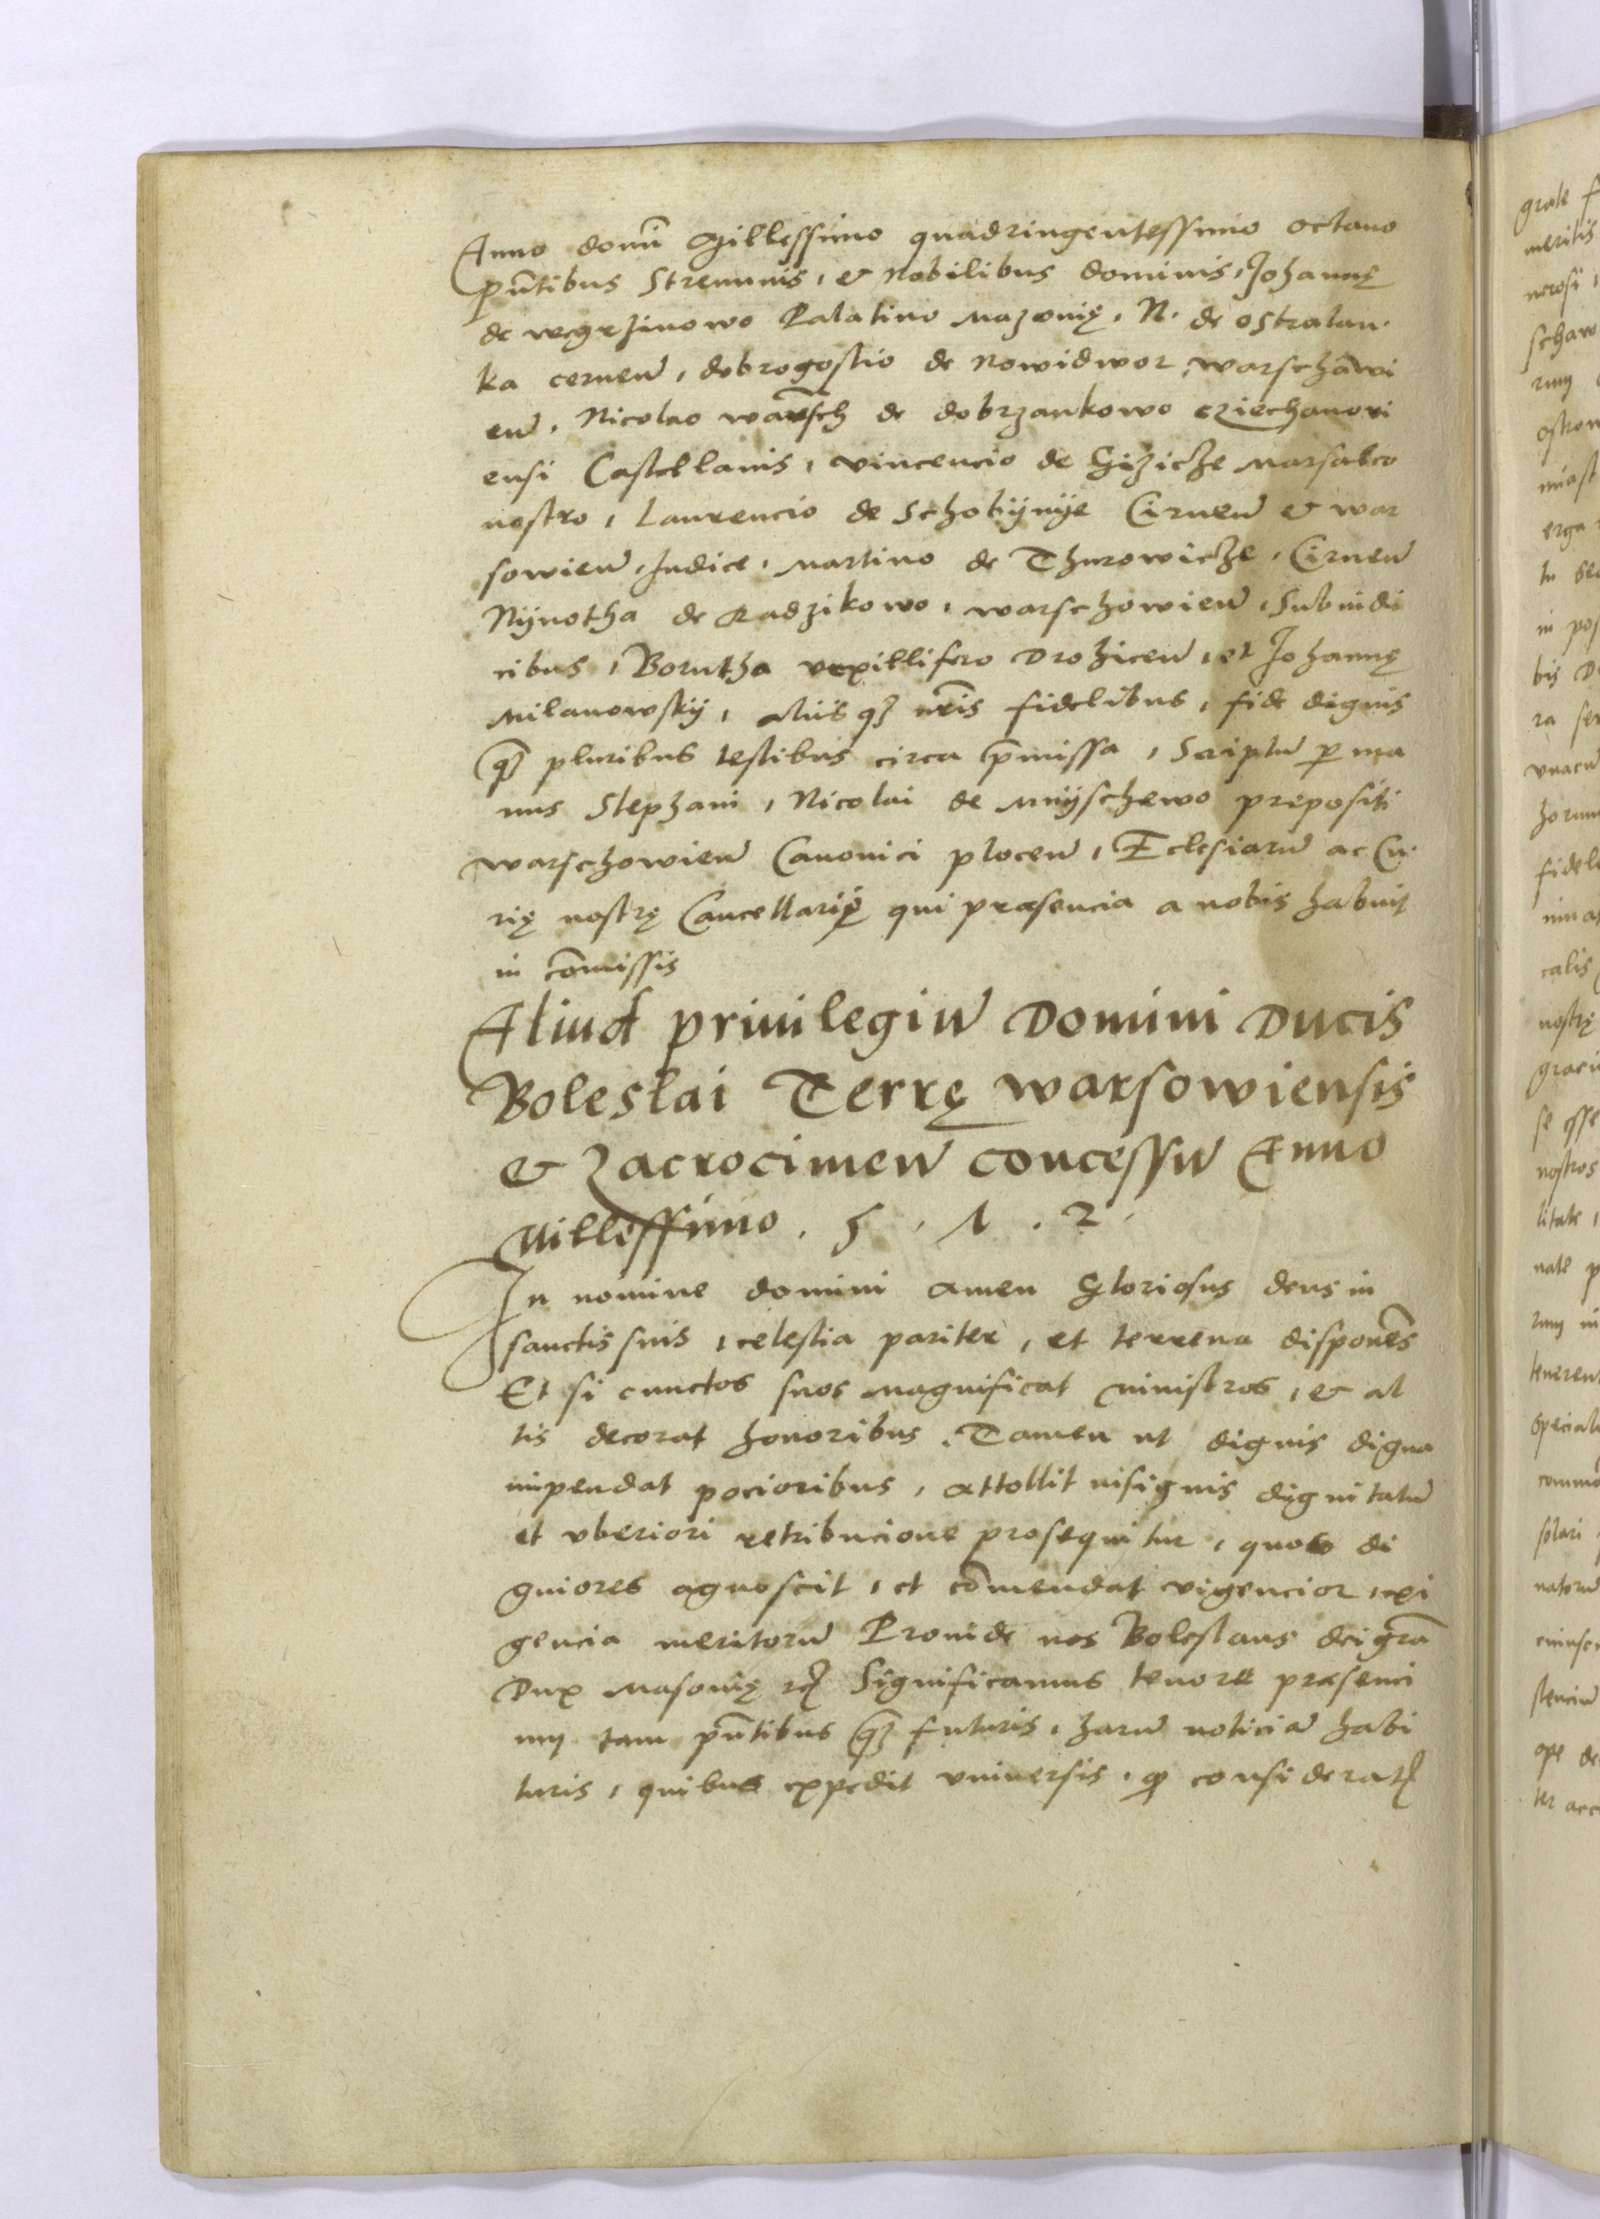 Anno domi᷑ Millessimo quadringentessimo octauo
pn̄tibus Strenuuis, & Nobilibus dominis, Johannę
de wegrzinowo Palatino Mazouię, N. de ostralan.
ka cernen̄, dobrogostio de Nowidwor, warschawi
en̄, Nicolao warsch de dobrzankowo cziechanovi
ensi Castellanis, vincencio de Gizicze Marsalco
nostro, Laurencio de Schobÿnÿe Cirnen̄ & war
sowien̄, Judice, Martino de Thurowicze, Cirnen̄
Nÿnotha de Radzikowo, warschowien̄, Subiudi
cibus, Borutha vexillifero Drohicen̄, et Johannę
Milanowskÿ, aliis qȝ nr̄is fidelibus, fide dignis
qȝ pluribus testibus circa p̄missa, Scriptū p ma
nus Stephani, Nicolai de Mnÿschewo prepositi
warschowien̄ Canonici plocen̄, Eclesiarū ac Cu.
rię nostrę Cancellarij qui præsencia a nobis habuit
in com̄issis
Aliud priuilegiū Domini Ducis
Boleslai Terrę warsowiensis
& Zacrocimen̄ concessū Anno
Millessimo . 5 . 1 . 2 .
In nomine domini amen Gloriosus deus in
sanctis suis, celestia pariter, et terrena disponēs
Et si cunctos suos magnificat ministros, & al
tis decorat honoribus, Tamen ut dignis digna
inpendat pocioribus, attollit insignis dignitatū
et vberiori retribucione prosequitur, quos di
gniores agnoscit, et com̄endat vigencior, exi
gencia meritorū Prouide nos Boleslaus dei gr̄a
Dux Masouię rc̄ Significamus tenore præsenci
um tam pn̄tibus qȝ futuris, harū noticiā habi
turis, quibus expedit vniuersis, qȝ considerat